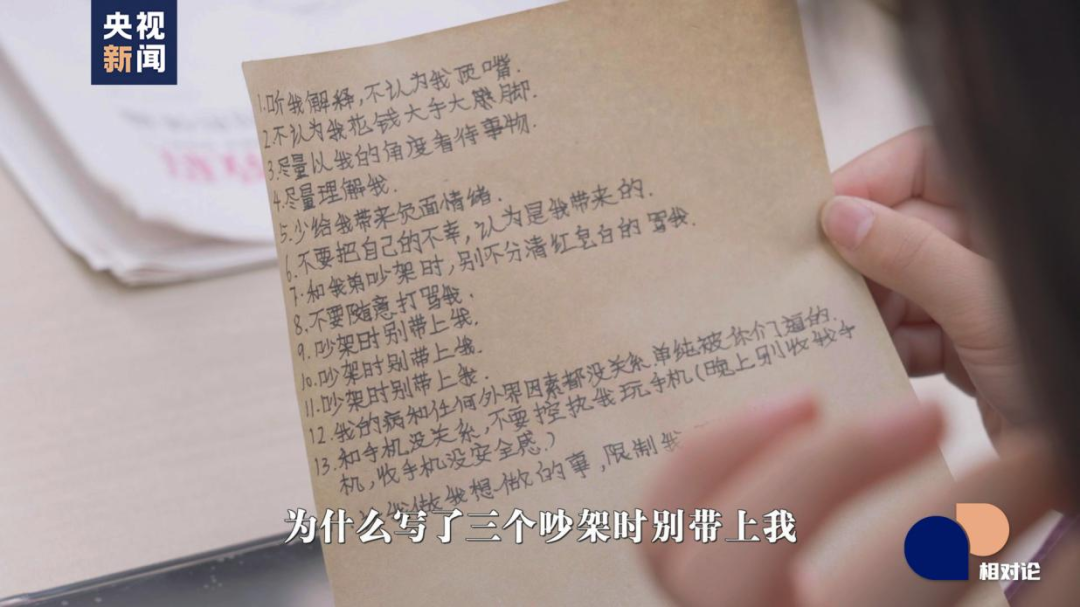 央视
新闻
1.听我解释,不认为我顶嘴.
2.不认为我花钱大手大脚.
3.尽量以我的角度看待事物.
4.尽量理解我.
5.少给我带来负面情绪.
6.不要把自己的不幸,认为是我带来的.
7.和我弟吵架时,别不分清红皂白的骂我.
8.不要随意打骂我.
9.吵架时别带上我.
10.吵架时别带上我.
11.吵架时别带上我.
12.我的病和任何外界因素都没关系.单纯被你们逼的.
13.和手机没关系,不要控执我玩手机(晚上别收我手
机,收手机没安全感)
我做我想做的事,限制我
为什么写了三个吵架时别带上我
相对论